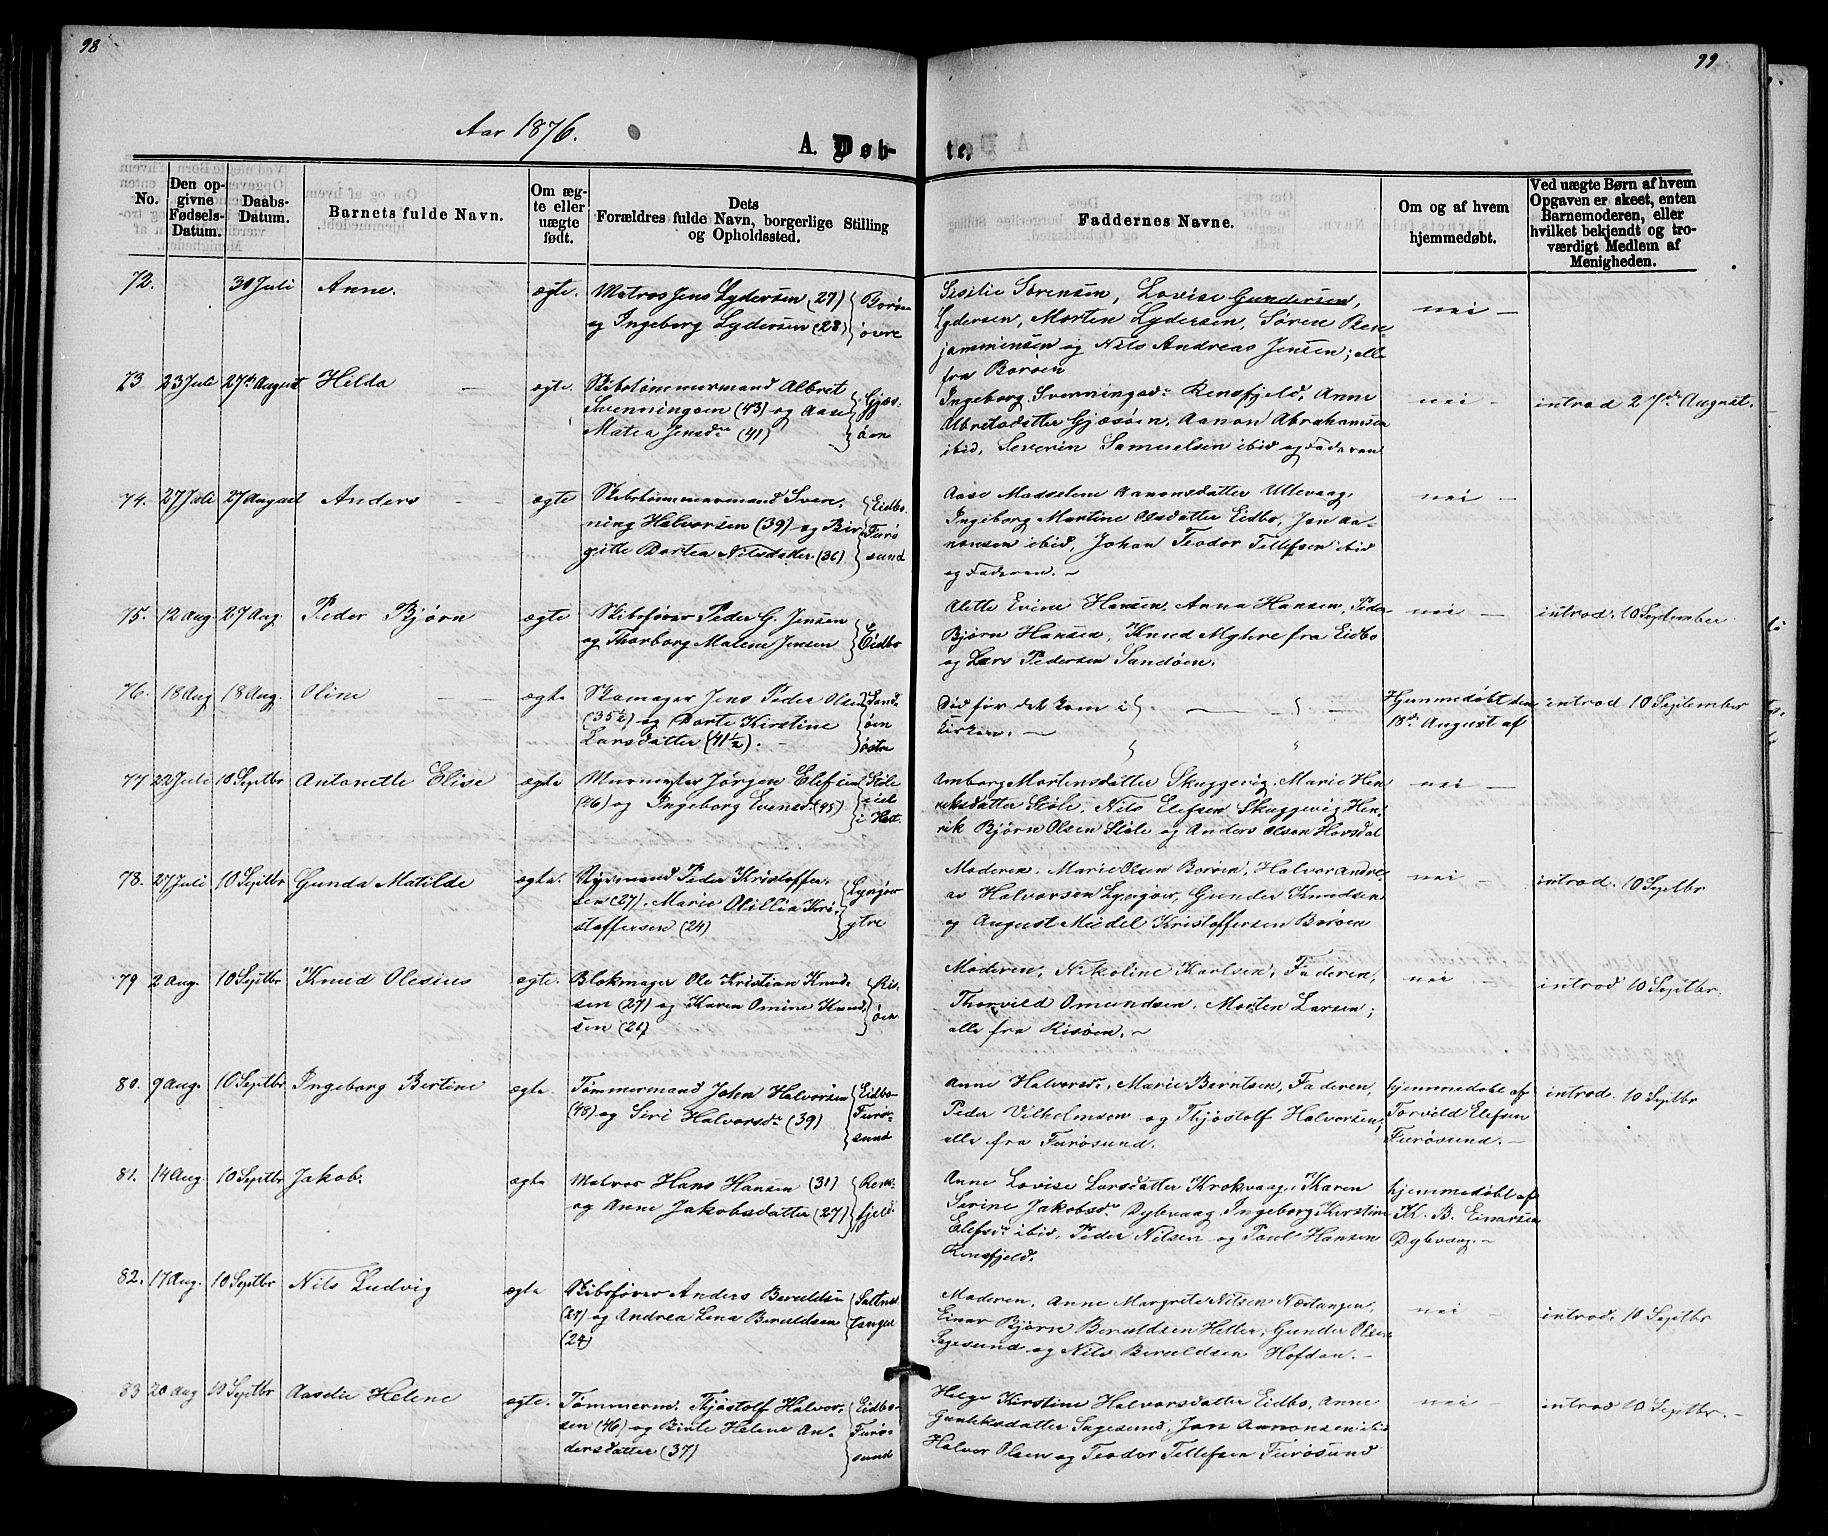 98
99
Aar 1876.
A. Døb-
te.
No.
Den op-
givne
Fødsels-
Datum.
Daabs-
Datum.
Barnets fulde Navn.
Om æg-
te eller
uægte
født.
Dets
Forældres fulde Navn, borgerlige Stilling
og Opholdssted.
Faddernes Navne.
Om og af hvem
hjemmedøbt.
Ved uægte Børn af hvem
Opgaven er skeet, enten
Barnemoderen, eller
hvilket bekjendt og tro-
værdigt Medlem af
Menigheden.
72. 30 Juli Anne. ægte.
Matros Jens Lydersen (27)
og Ingeborg Lydersen (28)
Borøen
øvre
Sisilie Sørensen, Lovise Gundersen,
Lydersen, Morten Lydersen, Søren Ben-
jaminsen og Nils Andreas Jensen; alle
fra Borøen
nei —
73 23 Juli 27de August Hilda — ægte.
Skibstømmermand Albret
Svenningsen (43) og Aase
Matea Jensdr (41)
Gjæs-
øen
Ingeborg Svenningsdr Rensfjeld, Anne
Albretsdatter Gjæsøen, Aanon Abrahamsen
ibid, Severin Samuelsen ibid og Faderen
nei —
introd 27de August.
74. 27 Juli 27 August Anders — ægte
Skibstømmermand Sven-
ning Halvorsen (39) og Bir-
gitte Bertea Nilsdatter (36)
Eidbo
Furø
sund
Aase Madselene Aanonsdatter Ullevaag,
Ingeborg Martine Olsdatter Eidbo, Jon Aa-
nonsen ibid, Johan Teodor Tellefsen ibid
og Faderen. ~
nei —
75. 12 Aug 27 Aug. Peder Bjørn ægte
Skibsfører Peder G. Jensen
og Thorborg Malene Jensen
Eidbo
Olette Evine Hansen, Anna Hansen, Peder
Bjørn Hansen, Knud Myhre fra Eidbo
og Lars Pedersen Sandøen.
nei —
introd. 10 September
76. 18 Aug 18 Aug. Oline — ægte
Skomager Jens Peder Olsen
(35½) og Dorte Kirstine
Larsdatter (41½). —
Sand-
øen
østre
Død før det kom i
Kirken. —
Hjemmedøbt den
18de August af
introd 10 September
77 22 Juli 10 Septbr Antonette Elise ægte
Murmester Jørgen Elefsen
(46) og Ingeborg Evensdr (45)
Støle
Amborg Mortensdatter Skuggevig, Marie Hen-
riksdatter Støle, Nils Elefsen Skuggevig, Hen-
rik Bjørn Olsen Støle og Anders Olsen Horsdal
nei —
78. 27 Juli 10 Septbr Gunda Matilde ægte.
Styrmand Peder Kristoffer-
sen (27), Marie Otillia Kri-
stoffersen (24)
Lyngør
ytre
Moderen, Marie Olsen Borøen, Halvor Andre-
as Halvorsen Lyngør, Gunder Knudsen
og August Meidel Kristoffersen Borøen
nei —
introd. 10 Septbr
79 2 Aug. 10 Septbr Knud Olesius ægte.
Blokmager Ole Kristian Knud-
sen (27) og Karen Omine Knud-
sen (26)
Ris-
øen
Moderen, Nikoline Karlsen, Faderen,
Thorvild Omundsen, Morten Larsen;
alle fra Risøen. ~
nei —
introd 10 Septbr.
80. 9 Aug. 10 Septbr Ingeborg Bertine ægte.
Tømmermand John Halvorsen
(48) og Seri Halvorsdr (39)
Eidbo-
Furø-
sund
Anne Halvorsdr, Marie Berntsen, Faderen,
Peder Vilhelmsen og Thjøstolf Halvorsen;
alle fra Furøsund.
hjemmedøbt af
Torvild Elefsen
Furøsund. —
introd. 10 Septbr
81. 14 Aug. 10 Septbr Jakob. ægte
Matros Hans Hansen (31)
og Anne Jakobsdatter (27)
Rens-
fjeld
Anne Lovise Larsdatter Krokvaag, Karen
Serine Jakobsdr Dybvaag, Ingeborg Kirstine
Elefsdr ibid, Peder Nilsen og Poul Hansen
Rensfjeld.
hjemmedøbt af
K. B. Einarsen
Dybvaag. —
82. 17 Aug. 10 Septbr Nils Ludvig ægte
Skibsfører Anders Beruldsen
(27) og Andrea Lena Beruldsen
(24)
Saltnes
tangen
Moderen, Anne Margrete Nilsen Næstangen,
Einar Bjørn Beruldsen Hetter, Gunder Olsen
Sagesund og Nils Beruldsen Hofdan. —
nei —
introd. 10 Septbr
83 20 Aug 10 Septbr Aaselie Helene ægte.
Tømmerm. Thjøstolf Halvor-
sen (46) og Birte Helene An-
dersdatter (37)
Eidbo-
Furø-
sund
Helge Kirstine Halvorsdatter Eidbo, Anne
Gunleksdatter Sagesund, Jon Aanonsen ibid
Halvor Olsen og Teodor Tellefsen Furøsund
nei —
introd 10 Septbr. —